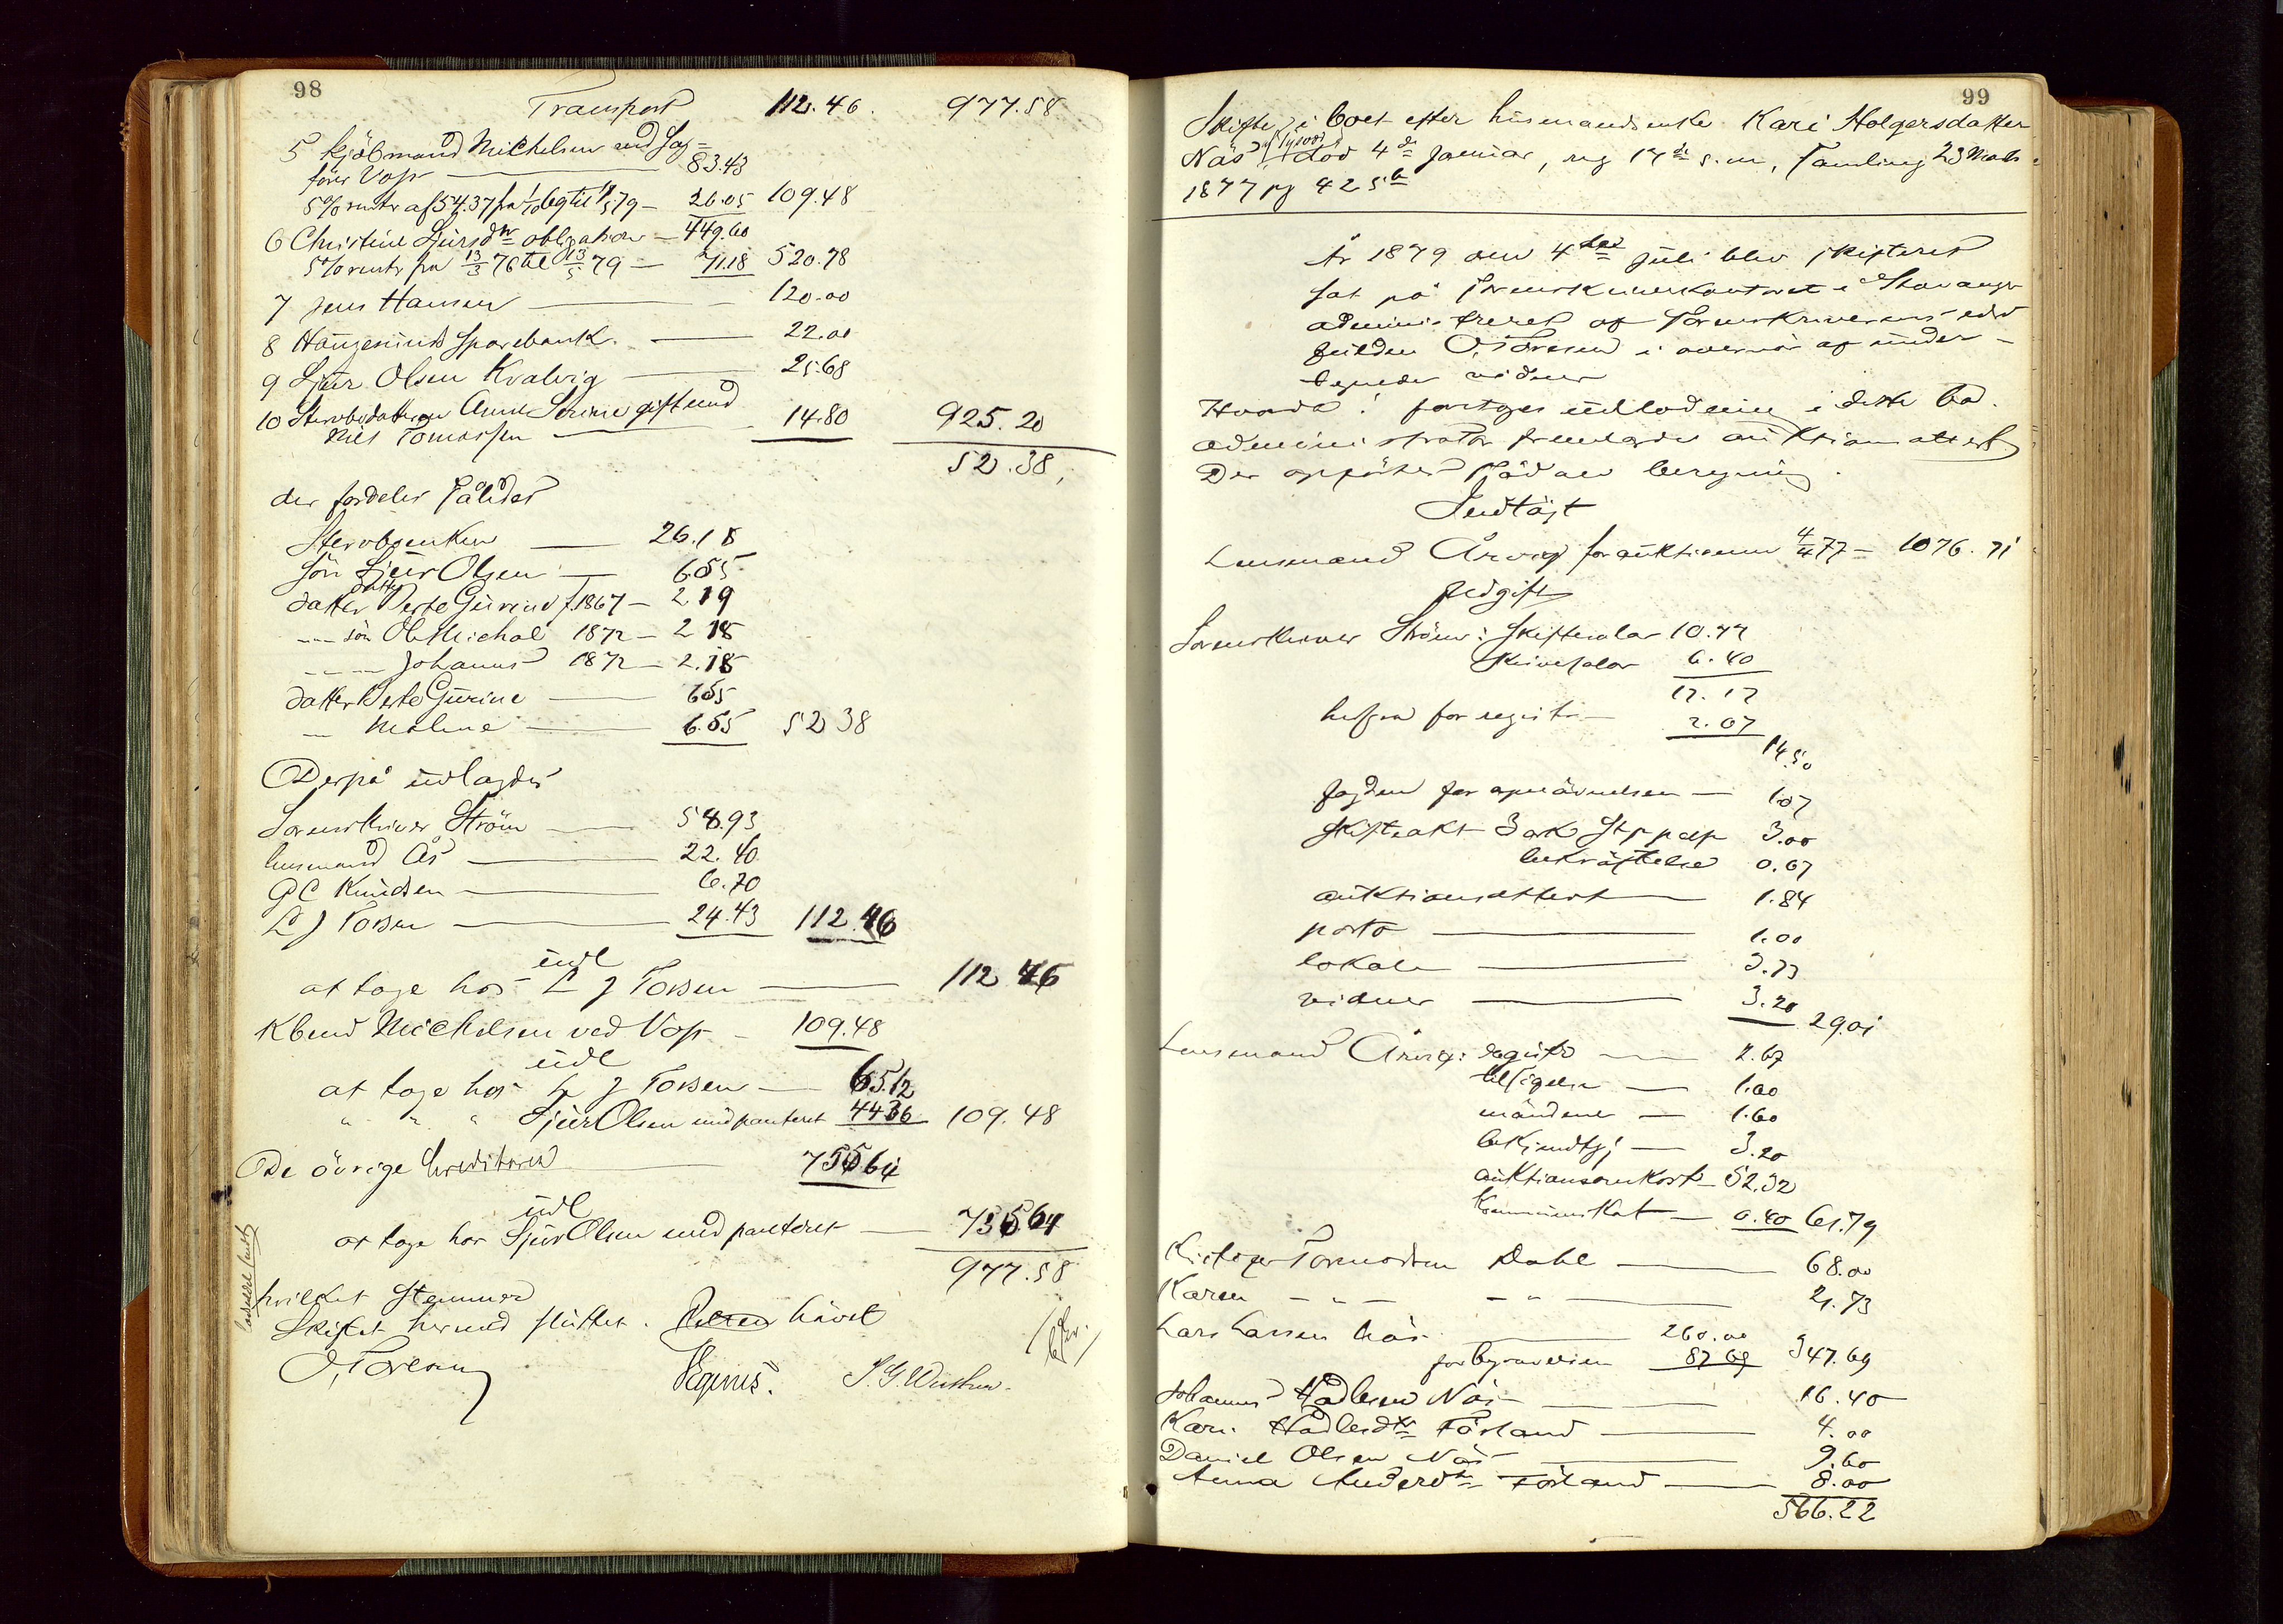 98
Transport 112.46. 977.58
5 Kjöbmand Michelsen ved Sag=
förer Vop 83.43
5% rente af 54.37 fra 1/10 69 til 1/5 79 - 26.05 109.48
6 Christine Sjursdtr obligation - 449.60
5% rente fra 13/3 76 til 13/5 79 - 71.18 520.78
7 Jens Hansen 120.00
8 Haugesunds Sparebank. 22.00
9 Sjur Olsen Kvalvig 25.68
10 Stervbodatteren Anne Serine gift med
Nils Tomassen 14.80 925.20
52.38,
der fordeles således
Stervboenken 26.18
sön Sjur Olsen 6.55
datter Berte Gurine f. 1867 - 2 19
" sön Ole Michal 1872 - 2 18
" " Johannes 1872 - 2.18
datter Berte Gurine 6.55
" Maline 6.55 52 38
Derpå udlagdes
Sorenskriver Ström 58.93
lensmand Ås 22.40
G C Knudsen 6.70
L J Torsen 24.43 112.46
udl
at tage hos L J Torsen 112 46
Kbmd Michelsen ved Vop - 109.48
udl
at tage hos L J Torsen 65.12
" " " Sjur Olsen mod panteret 44 36 109.48
De övrige kreditorer 755 64
udl
at tage hos Sjur Olsen mod panteret 755 64
977.58
hvilket stemmer
Skiftet hermed sluttet. hævet
O. Toresen
S. G.
99
Skifte i boet efter husmandsenke Kari Holgersdatter
Näs död 4de Januar, reg 17de s.m., Samling 23 Marts
1877 pg 425b
År 1879 den 4de Juli blev skifteret
sat på Sorenskriverkontoret i Stavanger
administreret af Sorenskriverens edsv
fuldm O. Toresen i overvær af under-
tegnede vidner
Hvorda! foretoges udlodning i dette bo.
administrator fremlagde auktionsattest
Der opgjöres sådan beregning.
Indtägt
Lensmand Årvig for auktionen 4/4 77 - 1076.71
Udgift
Sorenskriver Ström: Skiftesalar 10.77
Skrivesalar 6.40
17.17
for registr - 2.07
14.50
fogden for opnävnelsen - 1.07
Skifteakt 3 ark St papir 3.00
bekräftelse 0.67
auktionsattest 1.84
porto 1.00
lokale 3.73
vidner 3.20 29.01
Lensmand Årvig: registr 2.67
tilsigelse 1.00
mändene 1.60
bekjendtgj 3.20
auktionsomkost - 52.32
Kommunskat - 0.40 61.79
Tormodsen Dahl 68.00
Karen - " - - " - 21.73
Lars Larsen Näs 260.00
for begravelsen 87 69 347.69
Johannes Hadlesen Näs 16.40
Kari Hadlesdtr Förland 4.00
Daniel Olsen Näs 9.60
Anna Andersdtr Förland 8.00
566.22